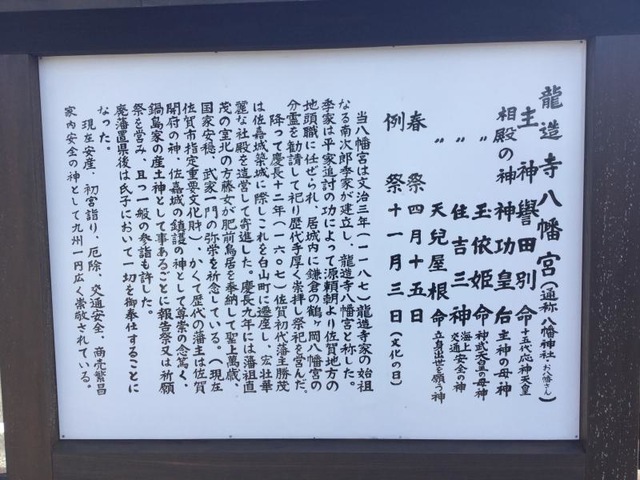 龍造寺八幡宮（通称八幡神社・お八幡さん）
主神 譽田別命 十五代応神天皇
相殿の神 神功皇后 主神の母神
〃 玉依姫命 神武天皇の母神
〃 住吉三神 海上・交通安全の神
〃 天兒屋根命 立身出世を願う神
春祭 四月十五日
例祭 十一月三日（文化の日）
当八幡宮は文治三年（一一八七）龍造寺家の始祖
なる南次郎季家が建立し、龍造寺八幡宮と称した。
季家は平家追討の功によって源頼朝より佐賀地方の
地頭職に任ぜられ、居城内に鎌倉の鶴ヶ岡八幡宮の
分霊を勧請して祀り歴代手厚く崇拝し祭祀を営んだ。
降って慶長十二年（一六〇七）佐賀初代藩主勝茂
は佐嘉城築城に際しこれを白山町に遷座し、宏壮華
麗な社殿を造営して寄進した。慶長九年には藩祖直
茂の室北の方藤女が肥前鳥居を奉納して聖上萬歳、
国家安穏、武家一門の弥栄を祈念している。（現在
佐賀市指定重要文化財）かくて歴代の藩主は佐賀
開府の神、佐嘉城の鎮護の神として尊崇の念篤く、
鍋島家の産土神として事あるごとに報告祭又は祈願
祭を営み、且つ一般の参詣も許した。
廃藩置県後は氏子において一切を御奉仕することに
なった。
現在安産、初宮詣り、厄除、交通安全、商売繁昌
家内安全の神として九州一円広く崇敬されている。